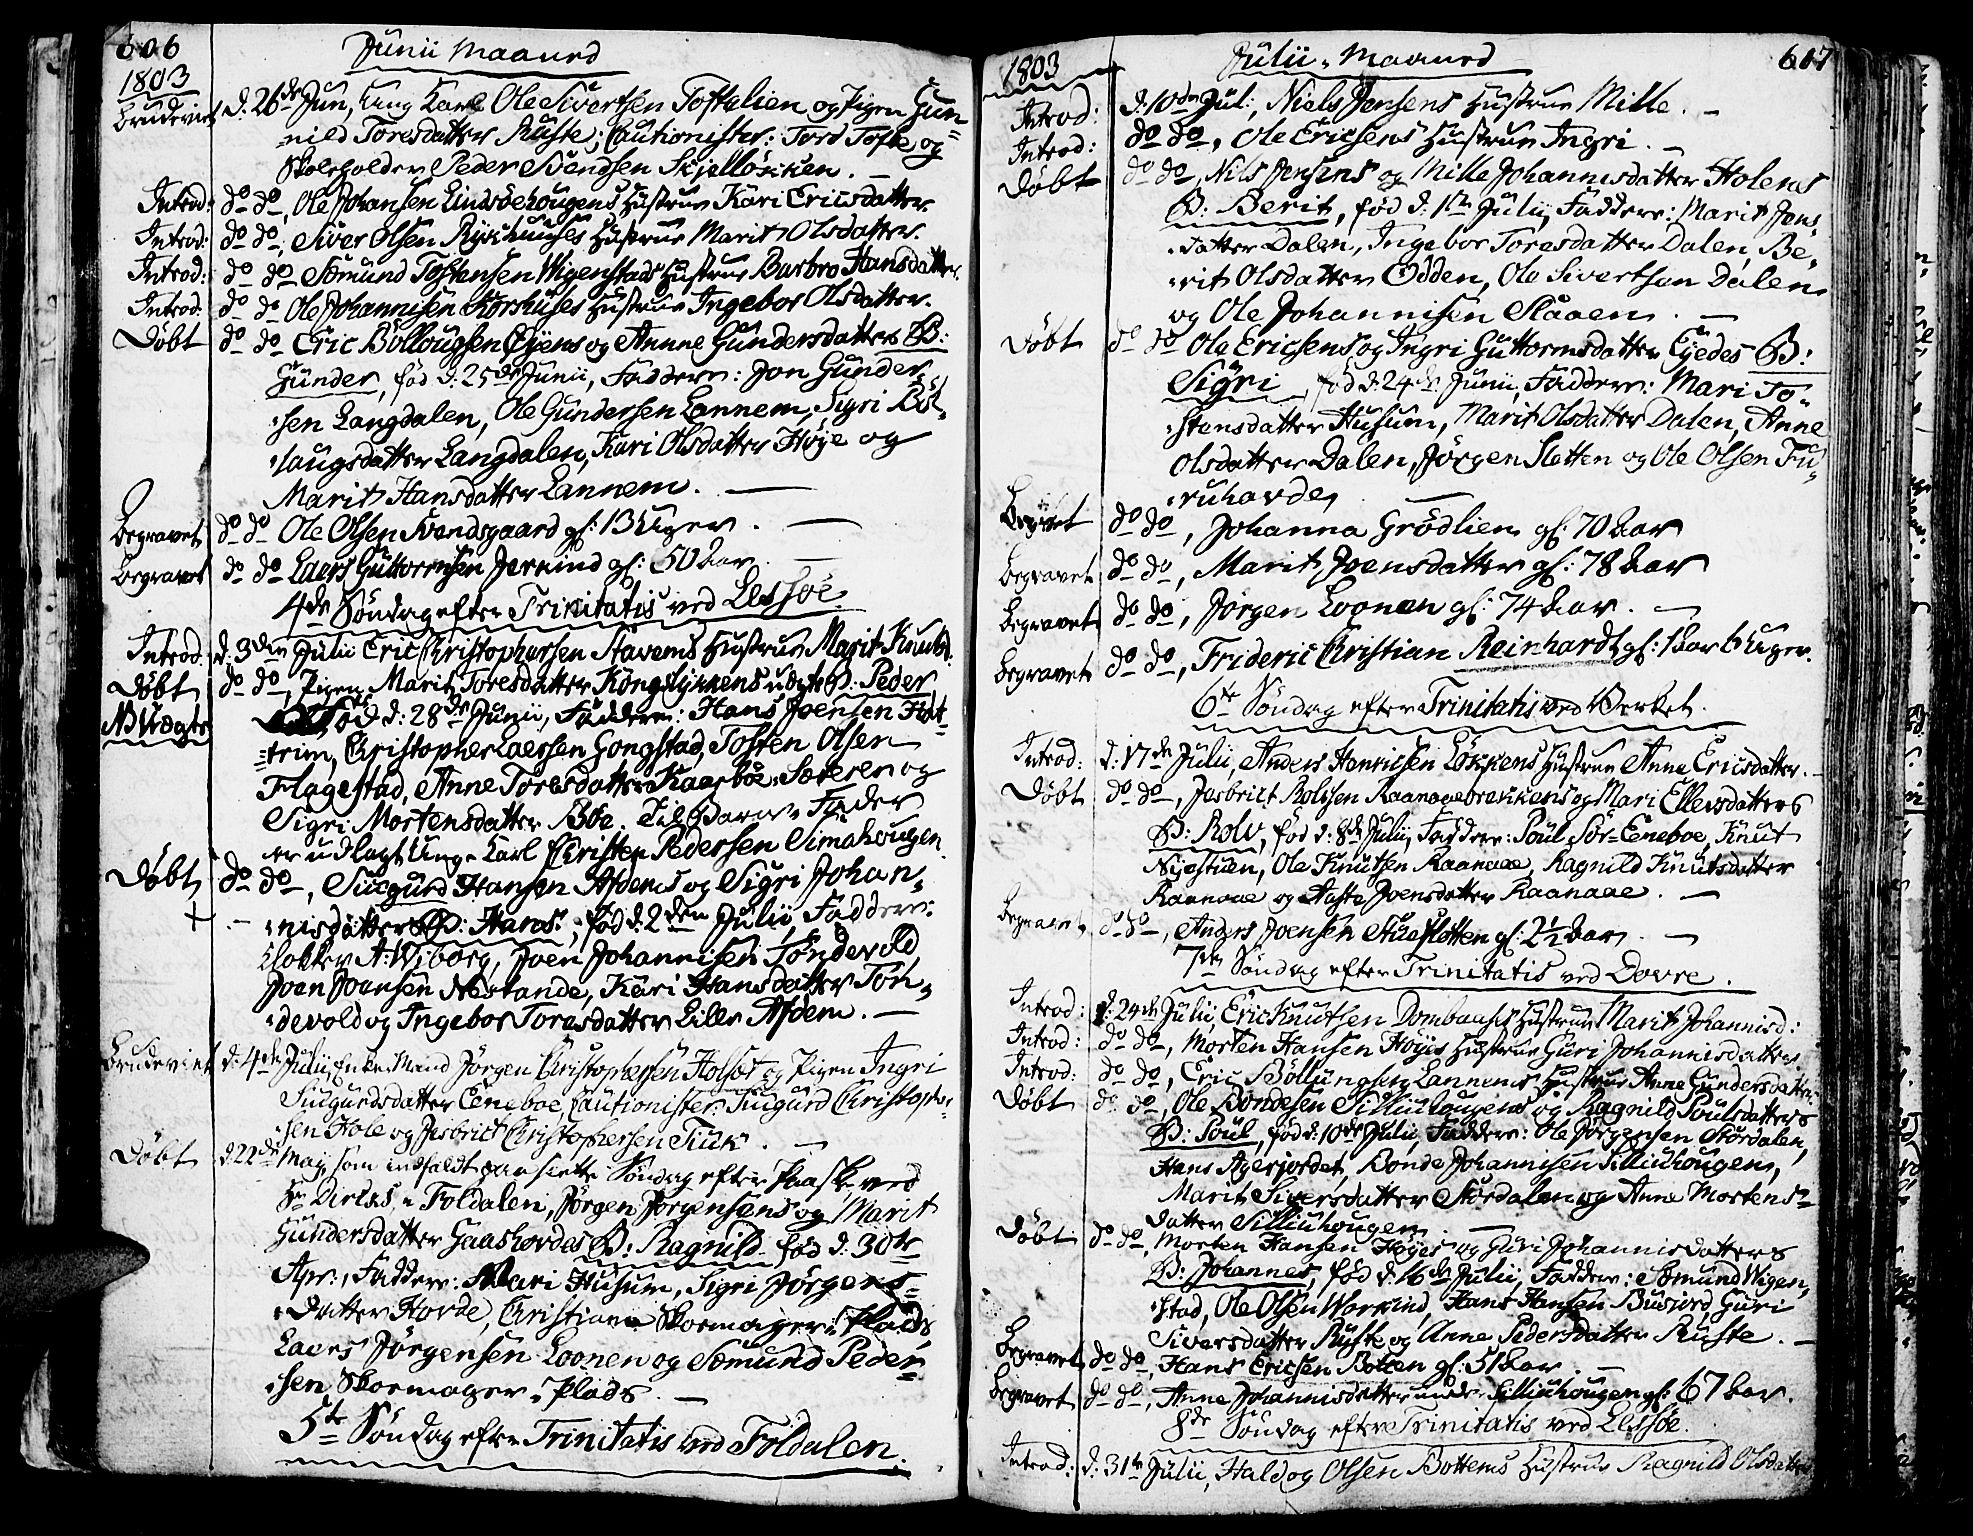 606
Junii Maaned
1803
Brudeviet d. 26de Jun, Ung Karl Ole Sivertsen Toftalien og Pigen Gun=
=nild Toresdatter Ruste; Cautionister: Tord Tofte og
Skoleholder Peder Svendsen Skjelløkken. —
Introd: do do, Ole Johansen Lindsøehougens Hustrue Kari Ericsdatter.
Introd: do do, Siver Olsen Rykhuuses Hustrue Marit Olsdatter.
Introd: do do Sømund Tostensen Wigenstads Hustrue Barbro Hansdatter.
Introd: do do Ole Johannisen Korshuses Hustrue Ingebor Olsdatter.
Døbt do do Eric Böllougsen Öyens og Annne Gundersdatters B:
Gunder, fød d: 25de Junii, Faddere: Jon Gunder,
sen Langdalen, Ole Gundersen Lannem, Sigri Böl-
laugsdatter Langdalen, Kari Olsdatter Høje og
Marit Hansdatter Lannem. —
Begravet do do Ole Olsen Svendsgaard gl: 13 Uger. —
Begravet do do Laers Guttormsen Jerkind gl: 50 Aar. —
4de Søndag efter Trinitatis ved Lessøe.
Introd. d. 3den Julii Eric Christophersen Stavems Hustrue Marit Knutsd.
Døbt do do, Pigen Marit Toresdatter Kongslykkens uægte B: Peder
NB Uægte fød d: 28de Junii, Faddere: Hans Joensen Hat=
=trim, Christopher Laersen Gongstad, Tosten Olsen
Flagestad, Anne Toresdatter Kaarbøe-Sæteren og
Sigri Mortensdatter Böe. Til Barne-Fader
er udlagt Unge Karl Christen Pedersen Simahougen.
Døbt do do, Siugurd Hansen Afdems og Sigri Johan-
+ nisdatters B: Hans, fød d. 2den Julii, Faddere:
Klokker A: Wiborg, Joen Johannisen Tøndevold
Joen Joensen Nestande, Kari Hansdatter Tøn-
devold og Ingebor Toresdatter Lille Afdem. —
Brudeviet d. 4de Julii, Enke-Mand Jörgen Christophersen Holset og Pigen Ingri
Siugurdsdatter Eeneboe, Cautionister: Siugurd Christopher-
sen Hole og Jesbrict Christophersen Tiuk. —
Døbt d. 22de Maji, som indfaldt paa siette Søndag efter Paaske ved
Foldalen, Jørgen Jørgensens og Marit
Gundersdatter Gaashovdes B: Ragnild fød d. 30te
Apr:, Faddere: Mari Husum, Sigri Jørgens=
Datter Hovde, Christiane Skomager-Plads
Laers Jørgensen Loonen og Sømund Peder=
sen Skomager-Plads. —
5te Søndag efter Trinitatis ved Foldalen.
1803
Julii Maaned
607
Introd: d: 10de Jul:, Niels Jensens Hustrue Mille. —
Introd: do do, Ole Ericsens Hustrue Ingri. —
Døbt do do, Nils Jensens og Mille Johannisdatter Holens
B: Berit, fød d: 1ste Julii, Faddere: Marit Jons
datter Dalen, Ingebor Toresdatter Dalen, Be-
rit Olsdatter Odden, Ole Sivertson Dalen
og Ole Johannisen Slaaen. —
Døbt do do Ole Ericsens og Ingri Guttormsdatter Eyedes B:
Sigri, fød d. 24de Junii, Faddere: Mari To-
stensdatter Husum, Marit Olsdatter Dalen, Anne
Olsdatter Dalen, Jörgen Sletten og Ole Olsen Fu-
ruhovde, —
Begravet do do, Johanna Grødlien gl: 70 Aar
Begravet do do, Marit Joensdatter gl: 78 Aar
Begravet do do, Jörgen Loonen gl: 74 Aar. —
Begravet do do, Frideric Christian Reinhardt gl: 1 Aar 6 Uger.
6te Søndag efter Trinitatis ved Verket.
Introd: d: 17de Julii, Anders Henricsen Løkkens Hustrue Anne Ericsdatter. —
Døbt do do, Jesbrict Rolvsen Raanaaebrekkens og Mari Ellevsdatters
B: Rolv, fød d: 8de Julii, Faddere: Poul Sør-Eneboe, Knut
Nijestuen, Ole Knutsen Raanaae, Ragnild Knutsdatter
Raanaae og Aaste Joensdatter Raanaae. —
Begravet do do, Anders Joensen Stueslotten gl: 2½ Aar. —
7de Søndag efter Trinitatis ved Dovre.
Introd: d: 24de Julii, Eric Knutsen Dombaases Hustrue Marit Johannisd:
Introd: do do, Morten Hansen Höyes Hustrue Guri Johannisdatter
Introd: do do, Eric Böllungsen Lannems Hustrue Anne Gundersdatter.
Døbt do do, Ole Bondesen Silliuhougens og Ragnild Poulsdatters
B: Poul, fød d: 10de Julii, Faddere: Ole Jørgensen Stordalen,
Hans Agerjordet, Bonde Johannisen Silliuhougen,
Marit Siversdatter Stordalen og Anne Mortens-
datter Silliuhougen. —
Døbt do do, Morten Hansen Höyes og Guri Johannisdatters
B: Johannes, fød d: 16de Julii, Faddere: Sømund Wigen-
stad, Ole Olsen Warkind, Hans Hansen Busjord, Guri
Siversdatter Ruste og Anne Pedersdatter Ruste. —
Begravet do do, Hans Ericsen Botten gl: 51 Aar. —
Begravet do do, Anne Johannisdatter nedre Silliuhougen gl: 67 Aar.
8de Søndag efter Trinitatis ved Lessøe.
Introd: d: 31te Julii, Haldog Olsen Bottems Hustrue Ragnild Olsdatter